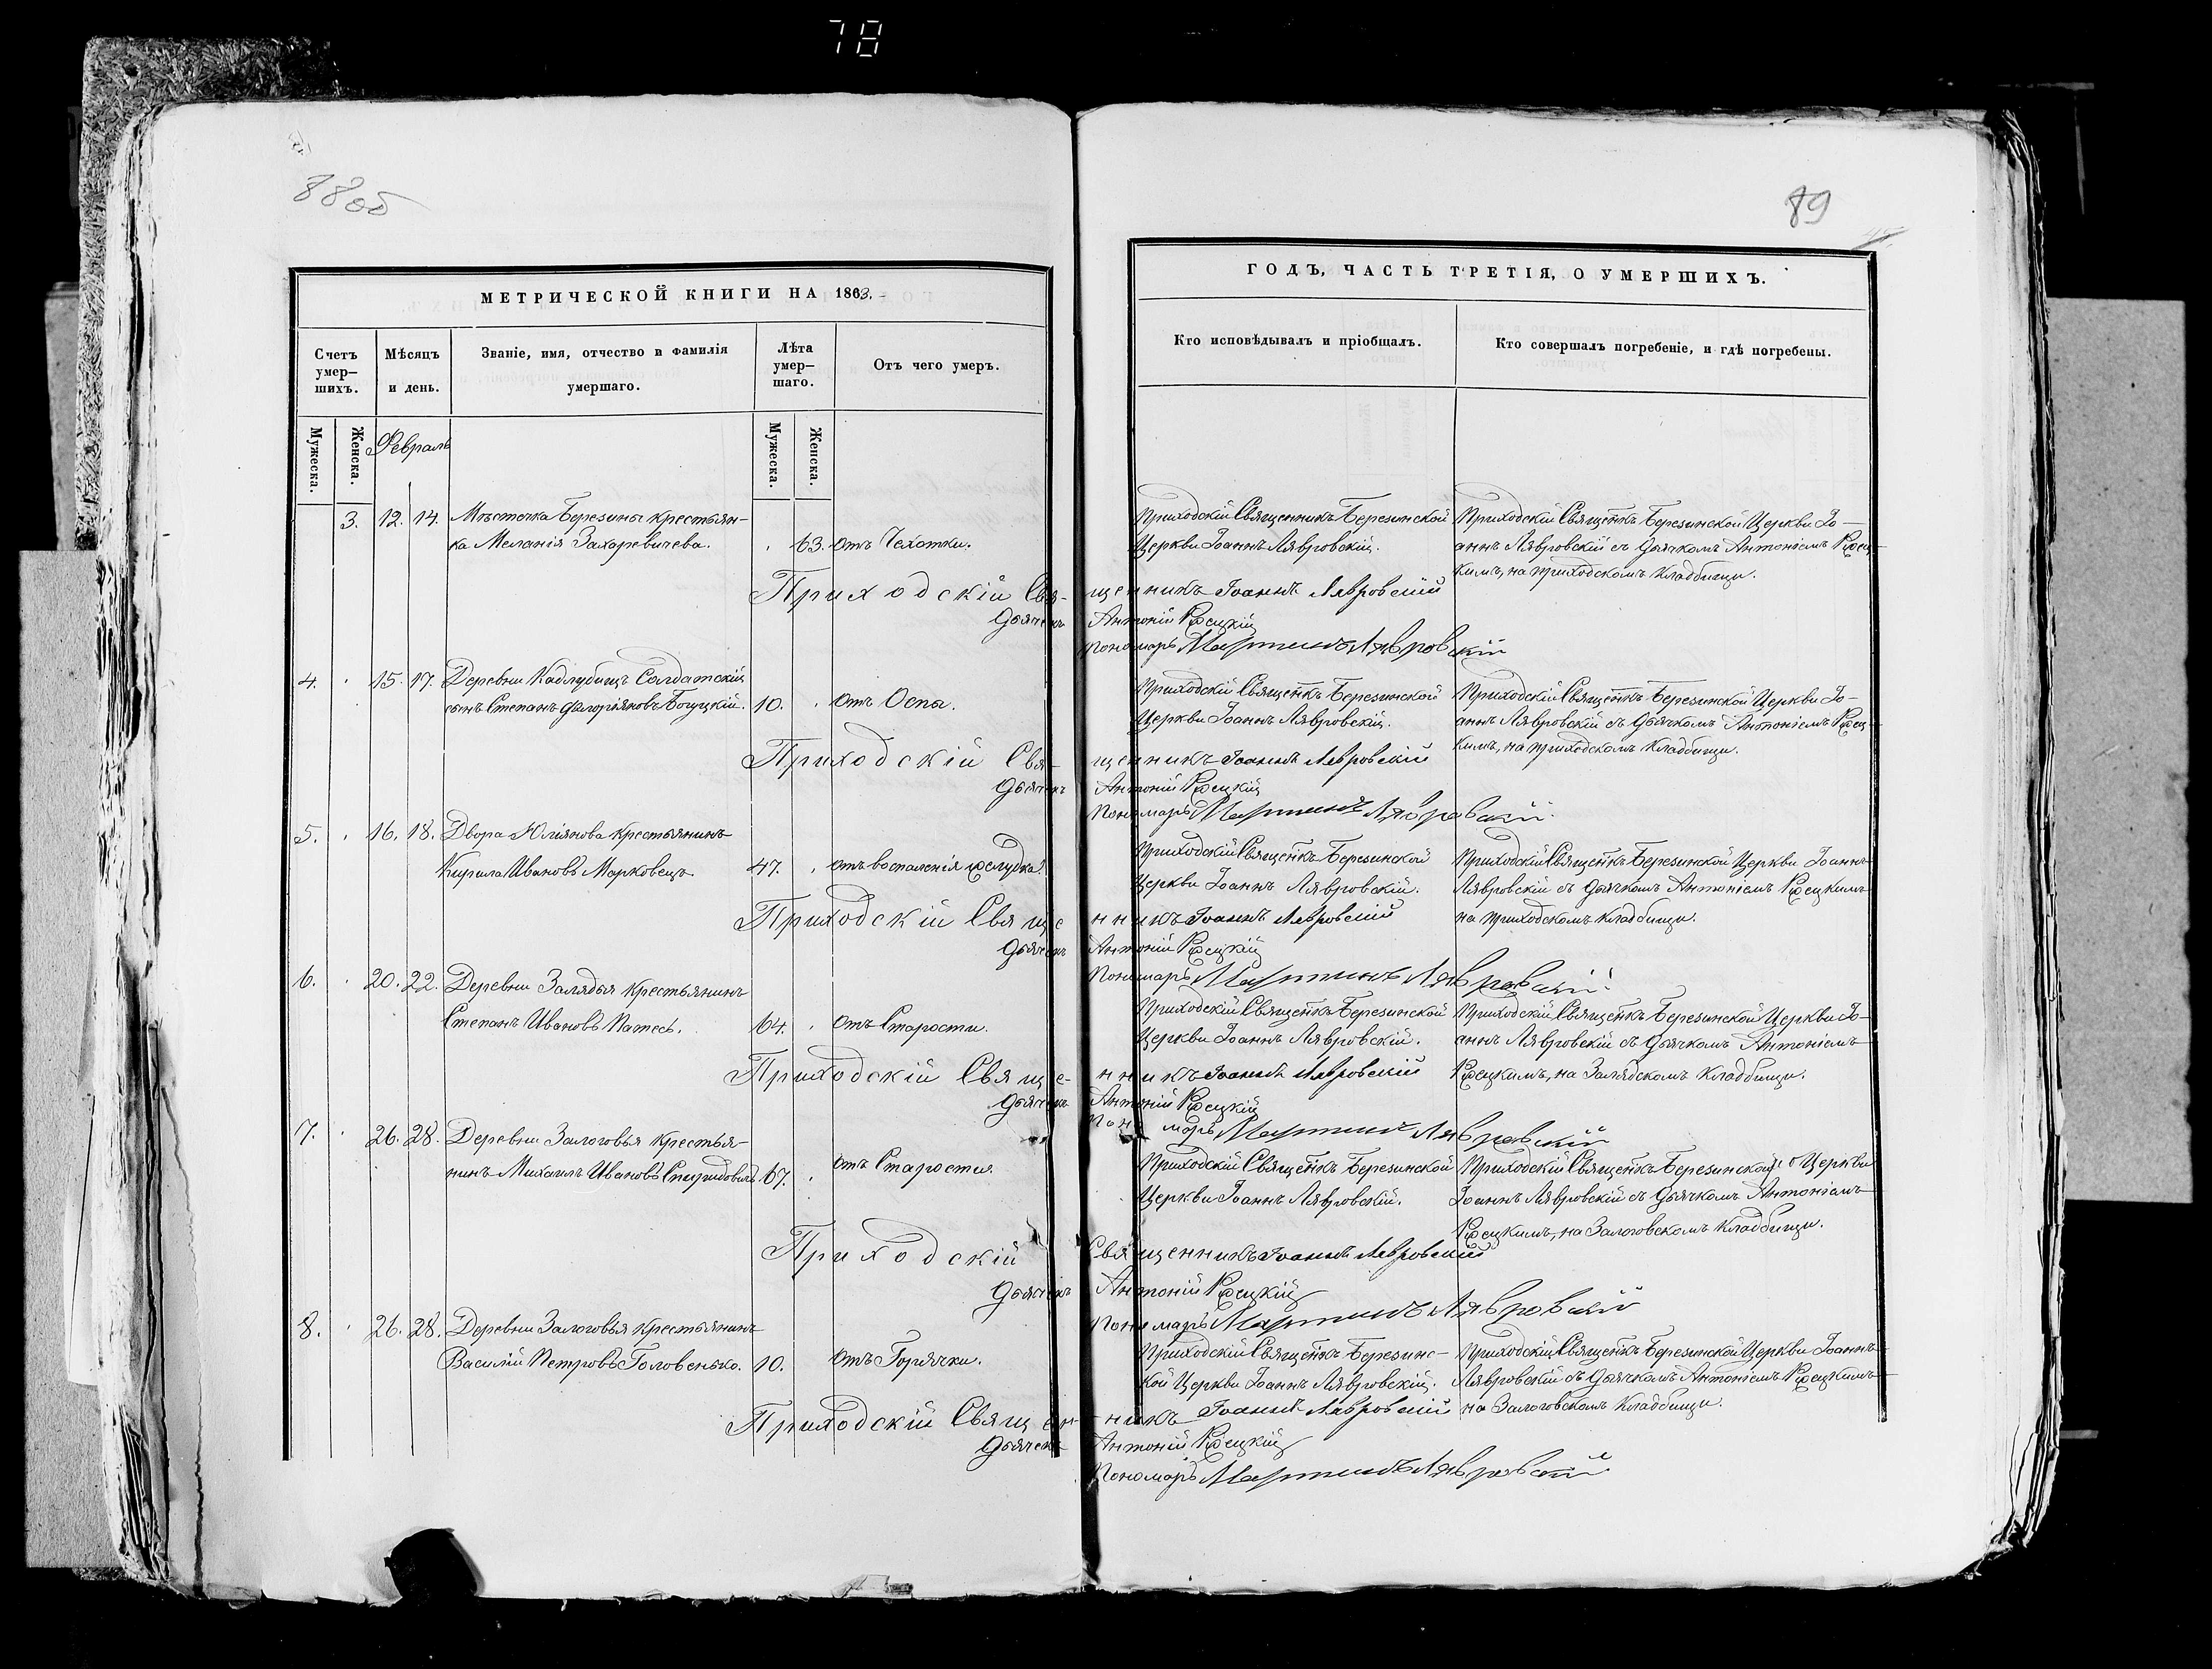 78
88 об
МЕТРИЧЕСКОЙ КНИГИ НА 1863.
Счетъ умер-шихъ.
Мѣсяцъ и день.
Званіе, имя, отчество и фамилія умершаго.
Лѣта умер-шаго.
Отъ чего умеръ.
Мужеска.
Женска.
Февраль
Мужеска.
Женска.
3. 12. 14. Мѣстечка Березины крестьян-
ка Меланія Захаревичева. 63. отъ Чехотки.
Приходскій Свя-
Дьячекъ
4. 15. 17. Деревни Кадлубищъ Солдатскій
сынъ Степанъ Флоріяновъ Богуцкій. 10. отъ Оспы.
Приходскій Свя-
Дьячекъ
5. 16. 18. Двора Юліянова крестьянинъ
Кирила Ивановъ Марковецъ 47. отъ воспаленія желудка.
Приходскій Свяще
Дьячекъ
6. 20. 22. Деревни Залядья крестьянинъ
Степанъ Ивановъ Патесь. 64. отъ Старости.
Приходскій Свяще-
Дьячекъ
7. 26. 28. Деревни Залоговья крестья-
нинъ Михаилъ Ивановъ Спиридовичъ 67. отъ Старости
Приходскій
Дьячекъ
8. 26. 28. Деревни Залоговья крестьянинъ
Василій Петровъ Головенько. 10. отъ Горячки.
Приходскій Священ-
Дьячекъ
89
ГОДЪ, ЧАСТЬ ТРЕТІЯ, О УМЕРШИХЪ.
Кто исповѣдывалъ и пріобщалъ.
Кто совершалъ погребеніе, и гдѣ погребены.
Приходскій Священникъ Березинской Приходскій Священкъ Березинской Церкви Іо-
Церкви Іоаннъ Лявровскій. аннъ Лявровскій съ Дьячкомъ Антоніемъ Ржец-
кимъ, на приходскомъ Кладбищи.
щенникъ Іоаннъ Лявровскій
Антоній Ржецкій
Пономарь Мартинъ Лявровскій
Приходскій Священкъ Березинской Приходскій Священкъ Березинской Церкви Іо-
Церкви Іоаннъ Лявровскій. аннъ Лявровскій съ Дьячкомъ Антоніемъ Ржец-
кимъ, на приходскомъ Кладбищи.
щенникъ Іоаннъ Лявровскій
Антоній Ржецкій
Пономарь Мартинъ Лявровскій
Приходскій Священкъ Березинской Приходскій Священкъ Березинской Церкви Іоаннъ
Церкви Іоаннъ Лявровскій. Лявровскій съ Дьячкомъ Антоніемъ Ржецкимъ
на приходскомъ Кладбищи.
нникъ Іоаннъ Лявровскій
Антоній Ржецкій
Пономарь Мартинъ Лявровскій
Приходскій Священкъ Березинской Приходскій Священкъ Березинской Церкви Іо-
Церкви Іоаннъ Лявровскій. аннъ Лявровскій съ Дьячкомъ Антоніемъ
Ржецкимъ, на Залядскомъ Кладбищи.
нникъ Іоаннъ Лявровскій
Антоній Ржецкій
Пономарь Мартинъ Лявровскій
Приходскій Священкъ Березинской Приходскій Священкъ Березинской Церкви
Церкви Іоаннъ Лявровскій. Іоаннъ Лявровскій съ Дьячкомъ Антоніемъ
Ржецкимъ, на Залоговскомъ Кладбищи.
Священникъ Іоаннъ Лявровскій
Антоній Ржецкій
Пономарь Мартинъ Лявровскій
Приходскій Священкъ Березинс- Приходскій Священкъ Березинской Церкви Іоаннъ
кой Церкви Іоаннъ Лявровскій. Лявровскій съ Дьячкомъ Антоніемъ Ржецкимъ
на Залоговскомъ Кладбищи.
никъ Іоаннъ Лявровскій
Антоній Ржецкій
Пономарь Мартинъ Лявровскій